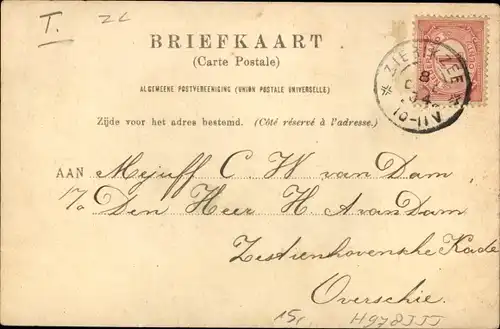 T. ZL
BRIEFKAART
(Carte Postale)
ALGEMEENE POSTVEREENIGING (UNION POSTALE UNIVERSELLE)
Zijde voor het adres bestemd. (Côté réservé à l'adresse.)
ZIERIKZEE
8
10-11V
AAN Mejuff C. W van Dam,
p/a Den Heer H. A van Dam
Zestienhovensche Kade
Overschie.
15,